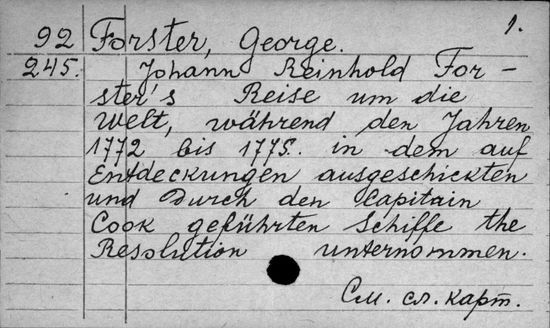 1.
92 Forster, George.
245. Johann Reinhold For-
ster's Reise um die
Welt, während den Jahren
1772 bis 1775. in dem auf
Entdeckungen ausgeschickten
und durch den Capitain
Cook geführten Schiffe the
Resolution unternommen.
См. сл. карт.